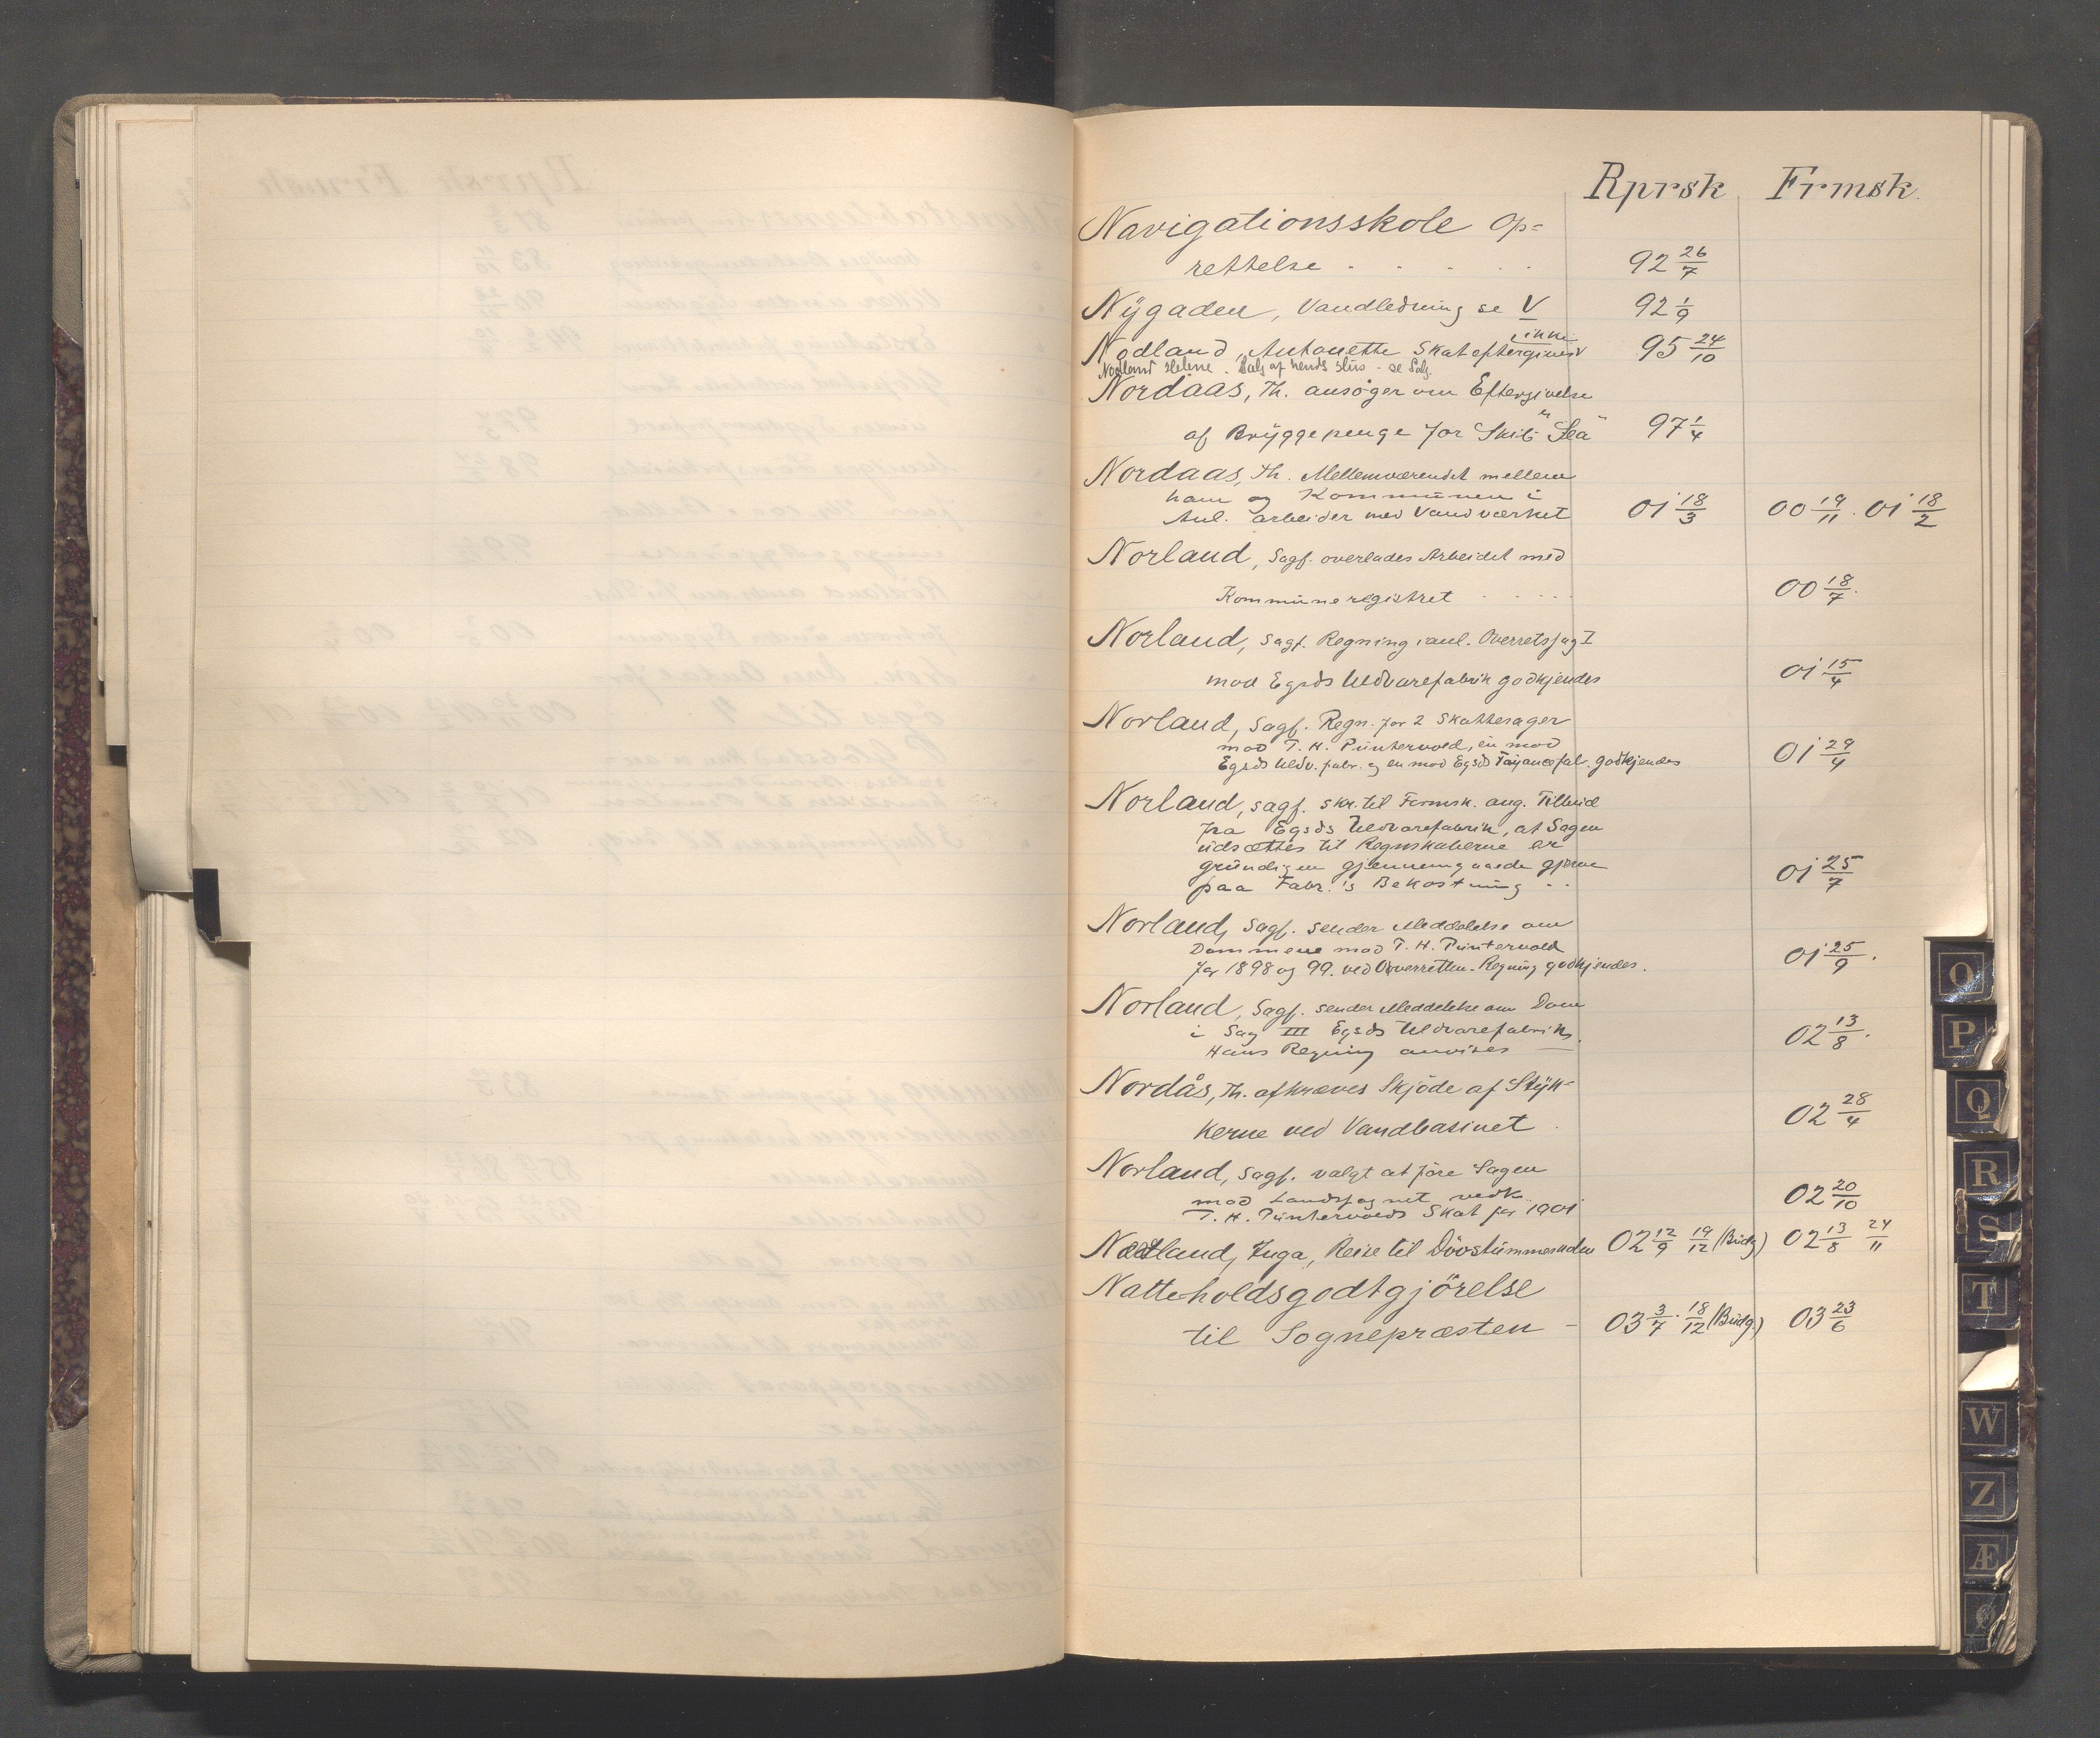 Rprsk Frmsk.
Navigationsskole Op=
rettelse . . . . . 92 26/7
Nÿgaden, Vandledning se V 92 1/9
ikke
Nodland, Antonette Skat eftergives 95 24/10
Nodland Helene. Salg af hends Hus - se Salg.
Nordaas, Th. ansøger om Eftergivelse
af Brÿggepenge for Skib "Sea" 97 1/4
Nordaas, Th. Mellemværendet mellem
ham og Kommunen i
Anl. arbeider med Vandværket 01 18/3 00 19/11. 01 18/2
Norland, Sagf. overlades Arbeidet med
Kommuneregistret . . . . 00 18/7.
Norland, Sagf. Regning i anl. Overretssag I
mod Egsds Uldvarefabrik godkjendes 01 15/4
Norland, Sagf. Regn. for 2 Skattesager
mod T. H. Püntervold, én mod
Egsds Uldv. fabr. og en mod Egsds Fajancefab. godkjendes 01 29/4
Norland, Sagf. skr. til Formsk. ang. Tilbud
fra Egsds Uldvarefabrik, at Sagen
udsættes til Regnskaberne er
grundigen gjennemgaaede gjerne
paa Fabr.'s Bekostning . . 01 25/7
Norland, Sagf. sender Meddelelse om
Dommene mod T. H. Püntervold
for 1898 og 99. ved Overretten - Regning godkjendes. 01 25/9.
Norland, Sagf. sender Meddelelse om Dom
i Sag III Egsds Uldvarefabrik.
Hans Regning anvises — 02 13/8.
Nordås, Th. afkræves Skjøde af Stÿk-
kerne ved Vandbasinet . 02 28/4
Norland, Sagf. valgt at føre Sagen
mod Landfognet vedk.
T. H. Püntervolds Skat for 1901 02 20/10
Nodland, Inga, Reise til Døvstummeanden 02 12/9 19/12 (Budg) 02 13/8 24/11
Natteholdsgodtgjörelse
til Sognepræsten - 03 3/7. 18/12 (Budg.) 03 23/6
O
P
Q
R
S
T
W
Z
Æ
Ø